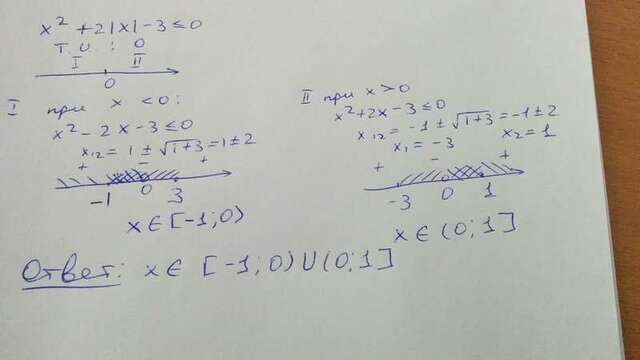 x² + 2|x| - 3 ≤ 0
т.и. : 0
I II
0
I при x < 0:
x² - 2x - 3 ≤ 0
x₁₂ = 1 ± √1+3 = 1 ± 2
+ - +
-1 0 3
x ∈ [-1; 0)
II при x > 0
x² + 2x - 3 ≤ 0
x₁₂ = -1 ± √1+3 = -1 ± 2
x₁ = -3 x₂ = 1
+ - +
-3 0 1
x ∈ (0; 1]
Ответ: x ∈ [-1; 0) U (0; 1]